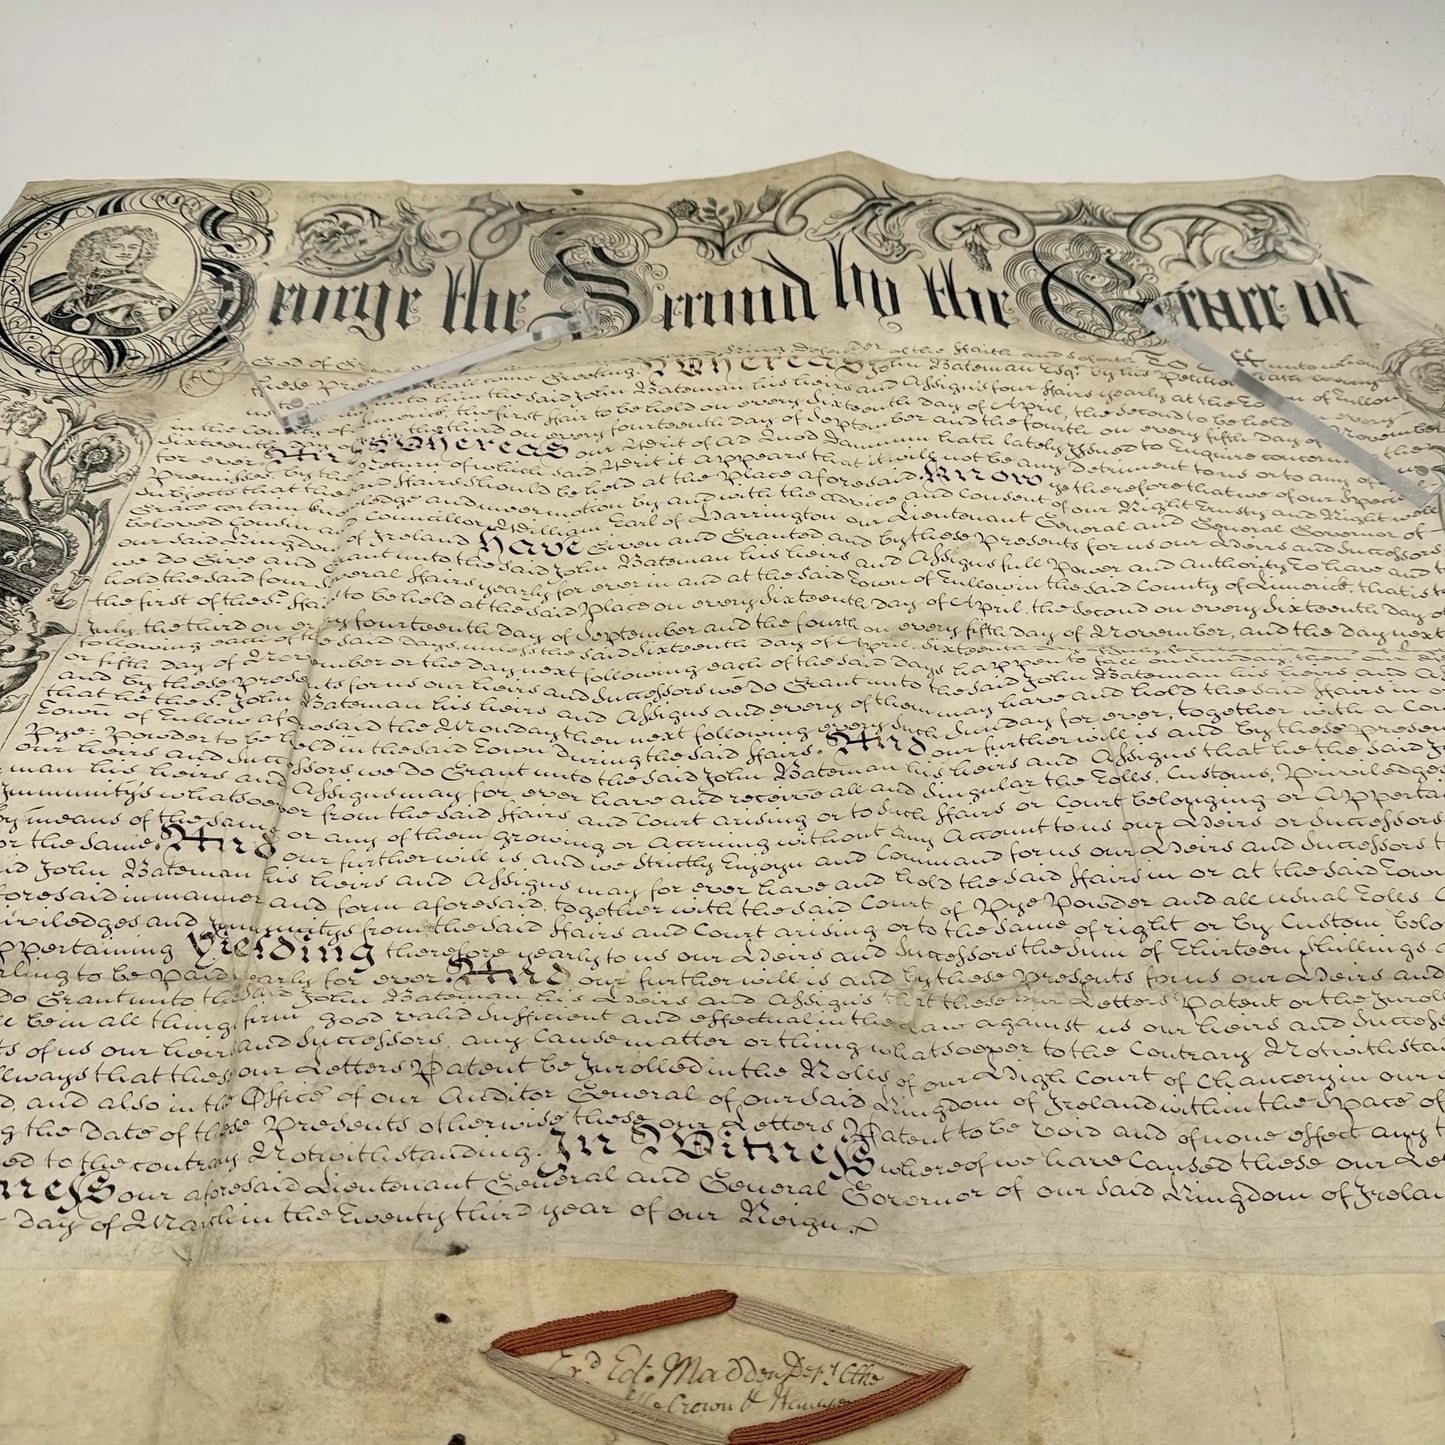 George the Second by the Grace of
God of Great defender of the ffaith and soforth To all unto whom
these Presents shall come Greeting. Whereas John Bateman Esqr. by his Petition hath
unto the said John Bateman his heirs and Assigns four ffairs yearly at the Town of Tullow
in the County of Limerick, the first ffair to be held on every sixteenth day of April, the second to be held on every
sixteenth day of the third on every fourteenth day of September and the fourth on every fifth day of November
for ever, And Whereas our Writ of Ad Quod Damnum hath lately issued to Enquire concerning the
Premisses, by the Return of which said Writ it appears that it will not be any detriment to us or to any of
Subjects that the said ffairs should be held at the Place aforesaid. Know ye therefore that we of our Special
Grace certain knowledge and meer motion by and with the advice and Consent of our Right Trusty and Right well
beloved Cousin and Councillor William Earl of Harrington our Lieutenant General and General Governor of
our said Kingdom of Ireland Have Given and Granted and by these Presents for us our Heirs and Successors
we do Give and Grant unto the said John Bateman his heirs and Assigns full Power and Authority To have and to
hold the said four several ffairs yearly for ever in and at the said Town of Tullow in the said County of Limerick, that is to
the first of the sd. ffairs to be held at the said Place on every sixteenth day of April, the second on every sixteenth day of
July, the third on every fourteenth day of September and the fourth on every fifth day of November, and the day next
following each of the said days, unless the said sixteenth day of April, sixteenth
or fifth day of November or the day next following each of the said days happen to fall on Sunday, then
and by these presents for us our heirs and Successors we do Grant unto the said John Bateman his heirs and
that he the sd. John Bateman his heirs and Assigns and every of them may have and hold the said ffairs in
Town of Tullow aforesaid the Monday then next following every such Sunday for ever, together with a
Pye-Powder to be held in the said Town during the said ffairs. And our further will is and by these presents
our heirs and Successors we do Grant unto the said John Bateman his heirs and Assigns that he the said
man his heirs and Assigns may for ever have and receive all and singular the Tolls, Customs, Priviledges
Immunitys whatsoever from the said ffairs and Court arising or to such ffairs or Court belonging or
by means of the same or any of them growing or Accruing without any Account to us our Heirs or Successors
or the same. And our further will is and we strictly Enjoyn and Command for us our Heirs and Successors
John Bateman his heirs and Assigns may for ever have and hold the said ffairs in or at the said Town
aforesaid in manner and form aforesaid, together with the said Court of Pye Powder and all usual Tolls
and Immunitys from the said ffairs and Court arising or to the same of right or by Custom
Yielding therefore yearly to us our Heirs and Successors the Sum of Thirteen Shillings
to be Paid yearly for ever. And our further will is and by these Presents for us our Heirs and
do Grant unto the said John Bateman his Heirs and Assigns that these our Letters Patent or the
be in all things firm good valid sufficient and effectual in the Law against us our heirs and
of us our heirs and Successors, any Cause matter or thing whatsoever to the Contrary
that these our Letters Patent be Inrolled in the Rolls of our High Court of Chancery in our
and also in the Office of our Auditor General of our said Kingdom of Ireland within the space of
the Date of these Presents otherwise these our Letters Patent to be Void and of none effect any
to the contrary Notwithstanding. In Witness whereof we have Caused these our
our aforesaid Lieutenant General and General Governor of our said Kingdom of
day of March in the Twenty third year of our Reign.
Ed: Madden Depty
Crown &